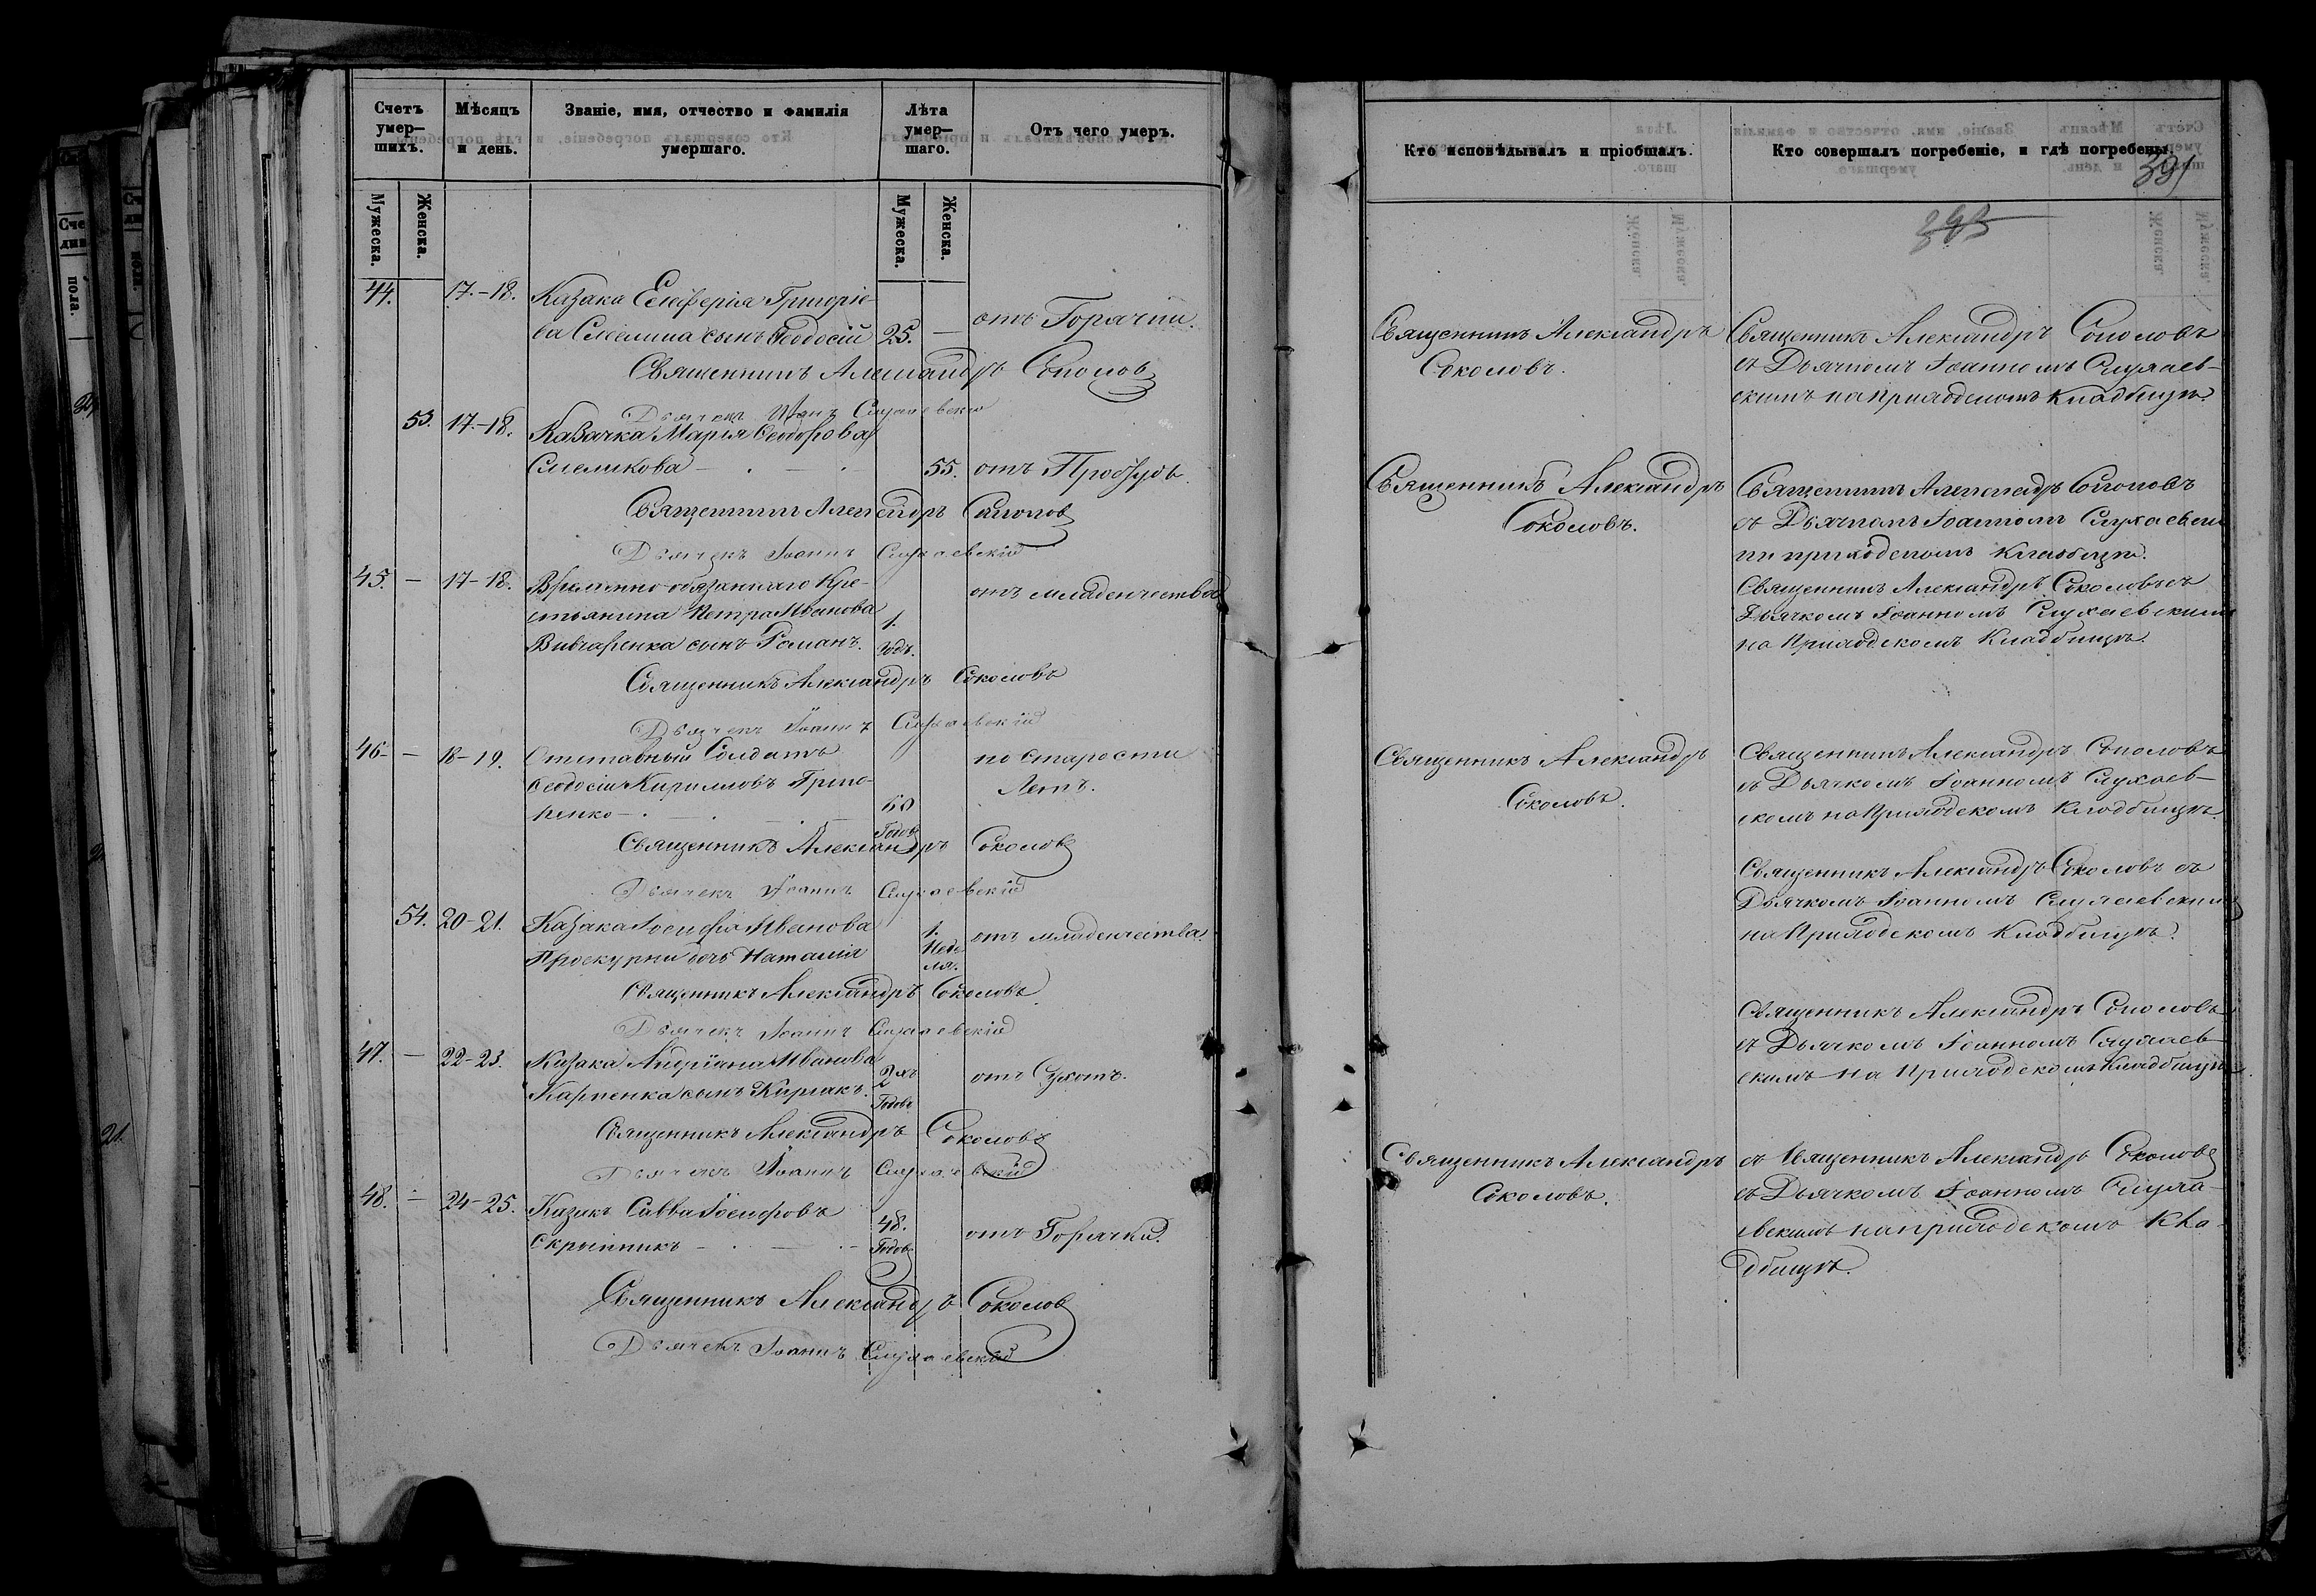 Счетъ умер-шихъ. Мѣсяцъ и день. Званіе, имя, отчество и фамилія умершаго. Лѣта умер-шаго. Отъ чего умеръ.
Мужеска. Женска. Мужеска. Женска.
44. 17.-18. Казака Григоріе-
ва сынъ Ѳеодосій 25. — отъ Горячки.
Священникъ Александръ Соколовъ
Дьячекъ Слухаевскій
53. 17.-18. Казачка Марія Ѳеодорова
Смеликова 55. отъ Простуды.
Священникъ Александръ Соколовъ
Дьячекъ Іоаннъ Слухаевскій
45. — 17-18. Временно-обязаннаго Кре-
стьянина Петра Иванова отъ младенчества
Вивчаренка сынъ Романъ. 1. годъ.
Священникъ Александръ Соколовъ
Дьячекъ Іоаннъ Слухаевскій
46. — 18-19. Отставный Солдатъ по старости
Ѳеодосій Кирилловъ Григо- Летъ.
ренко 60 Годовъ
Священникъ Александръ Соколовъ
Дьячекъ Іоаннъ Слухаевскій
54. 20-21. Казака Іосифа Иванова 1. отъ младенчества.
Проскурни дочь Наталія Неде-ля.
Священникъ Александръ Соколовъ
Дьячекъ Іоаннъ Слухаевскій
47. — 22-23. Казака Андріана Иванова 2хъ отъ Сухотъ.
Карпенка сынъ Киріакъ. Годовъ
Священникъ Александръ Соколовъ
Дьячекъ Іоаннъ Слухаевскій
48. — 24-25. Казакъ Савва Іосифовъ 48. отъ Горячки.
Скрыпникъ Годовъ
Священникъ Александръ Соколовъ
Дьячекъ Іоаннъ Слухаевскій
Кто исповѣдывалъ и пріобщалъ. Кто совершалъ погребеніе, и гдѣ погребены.
391
Священникъ Александръ Священникъ Александръ Соколовъ
Соколовъ. съ Дьячкомъ Іоанномъ Слухаев-
скимъ на приходскомъ Кладбищѣ.
Священникъ Александръ Священникъ Александръ Соколовъ
Соколовъ. съ Дьячкомъ Іоанномъ Слухаевски
на приходскомъ Кладбищѣ.
Священникъ Александръ Соколовъ съ
Дьячкомъ Іоанномъ Слухаевскимъ
на Приходскомъ Кладбищѣ.
Священникъ Александръ Священникъ Александръ Соколовъ
Соколовъ. съ Дьячкомъ Іоанномъ Слухаев-
скомъ на Приходскомъ Кладбищѣ.
Священникъ Александръ Соколовъ съ
Дьячкомъ Іоанномъ Слухаевскимъ
на Приходскомъ Кладбищѣ.
Священникъ Александръ Соколовъ
съ Дьячкомъ Іоанномъ Слухаев-
скимъ на Приходскомъ Кладбищѣ.
Священникъ Александръ съ Священникъ Александръ Соколовъ
Соколовъ. съ Дьячкомъ Іоанномъ Слуха-
евскимъ на приходскомъ Кла-
дбищѣ.